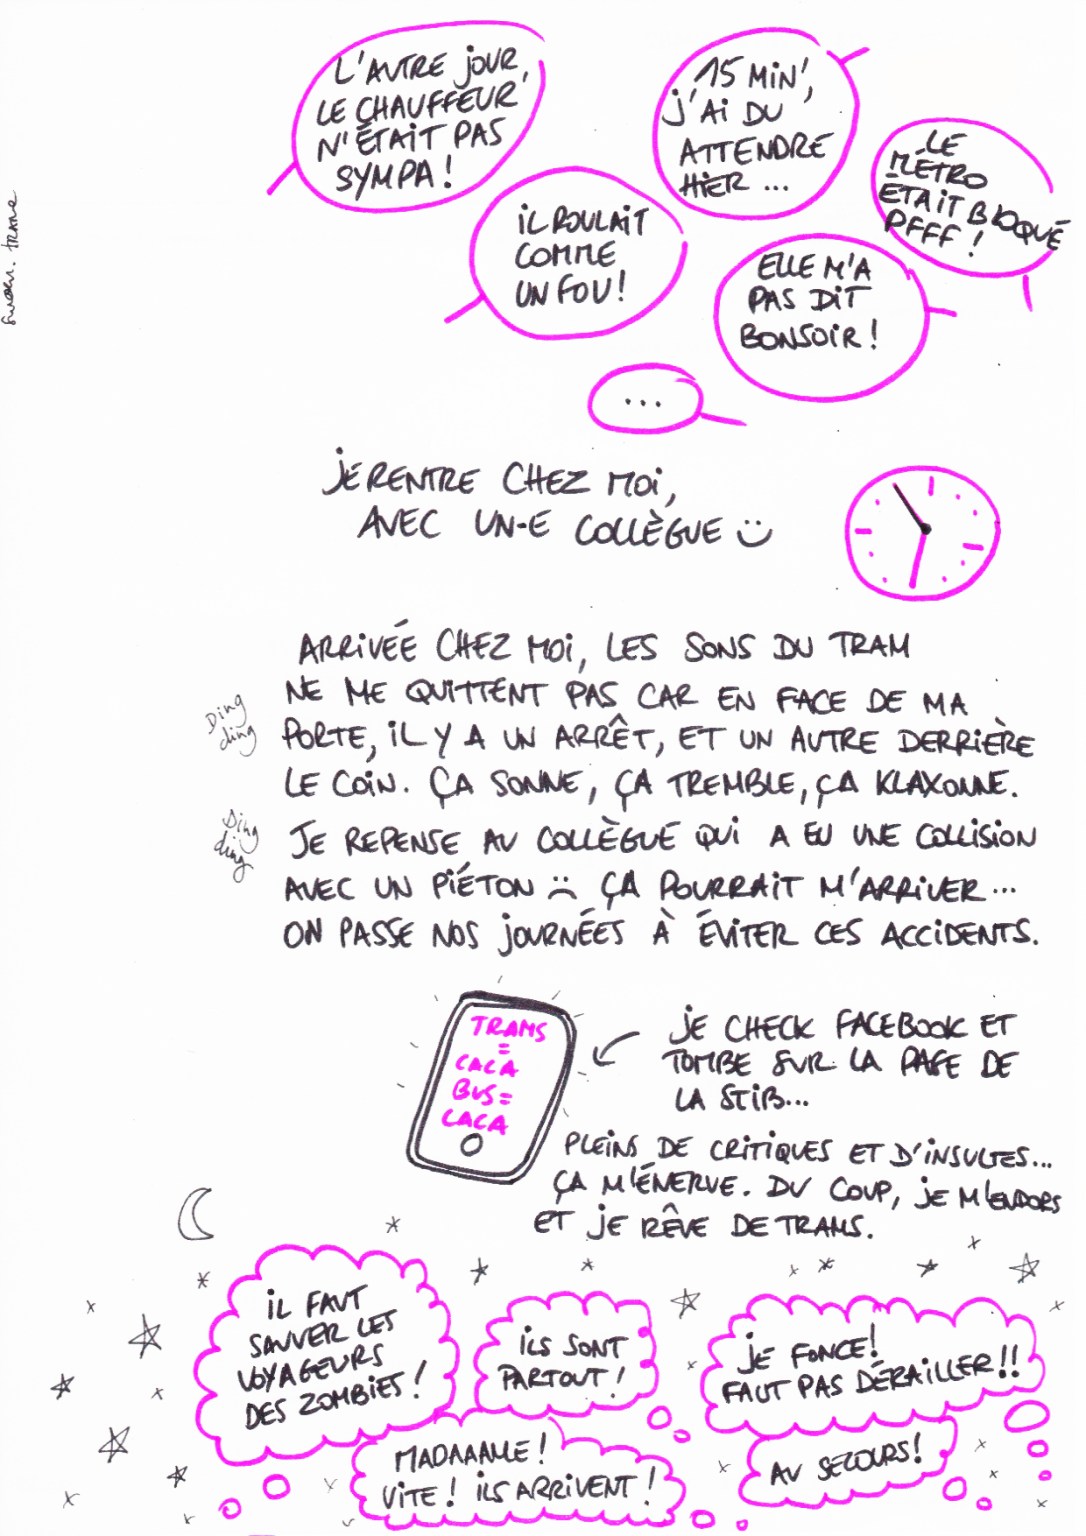 L'AUTRE JOUR,
LE CHAUFFEUR
N'ÉTAIT PAS
SYMPA !
15 MIN',
J'AI DU
ATTENDRE
HIER ...
LE
MÉTRO
ÉTAIT BLOQUÉ
PFFF !
IL ROULAIT
COMME
UN FOU !
ELLE M'A
PAS DIT
BONSOIR !
...
JE RENTRE CHEZ MOI,
AVEC UN-E COLLÈGUE :)
ARRIVÉE CHEZ MOI, LES SONS DU TRAM
NE ME QUITTENT PAS CAR EN FACE DE MA
PORTE, IL Y A UN ARRÊT, ET UN AUTRE DERRIÈRE
LE COIN. ÇA SONNE, ÇA TREMBLE, ÇA KLAXONNE.
Ding
ding
JE REPENSE AU COLLÈGUE QUI A EU UNE COLLISION
AVEC UN PIÉTON :( ÇA POURRAIT M'ARRIVER...
ON PASSE NOS JOURNÉES À ÉVITER CES ACCIDENTS.
Ding
ding
TRAMS
=
CACA
BUS =
CACA
JE CHECK FACEBOOK ET
TOMBE SUR LA PAGE DE
LA STIB...
PLEINS DE CRITIQUES ET D'INSULTES...
ÇA M'ÉNERVE. DU COUP, JE M'ENDORS
ET JE RÊVE DE TRAMS.
IL FAUT
SAUVER LES
VOYAGEURS
DES ZOMBIES !
ILS SONT
PARTOUT !
JE FONCE !
FAUT PAS DÉRAILLER !!
MADAAAME !
VITE ! ILS ARRIVENT !
AU SECOURS !